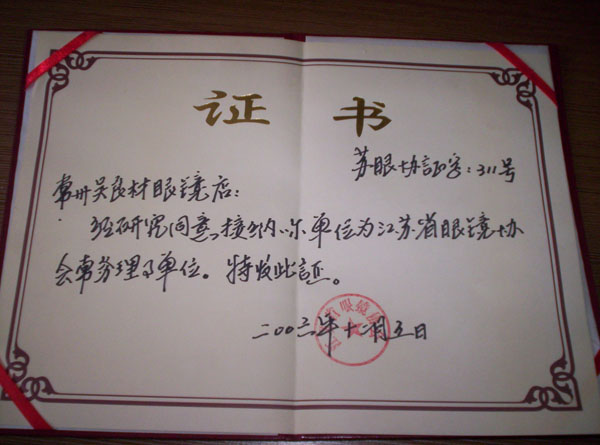 证书
苏眼协証字：311号
常州吴良材眼镜店：
经研究同意，接纳你单位为江苏省眼镜协
会常务理事单位。特发此证。
二〇〇六年十二月五日